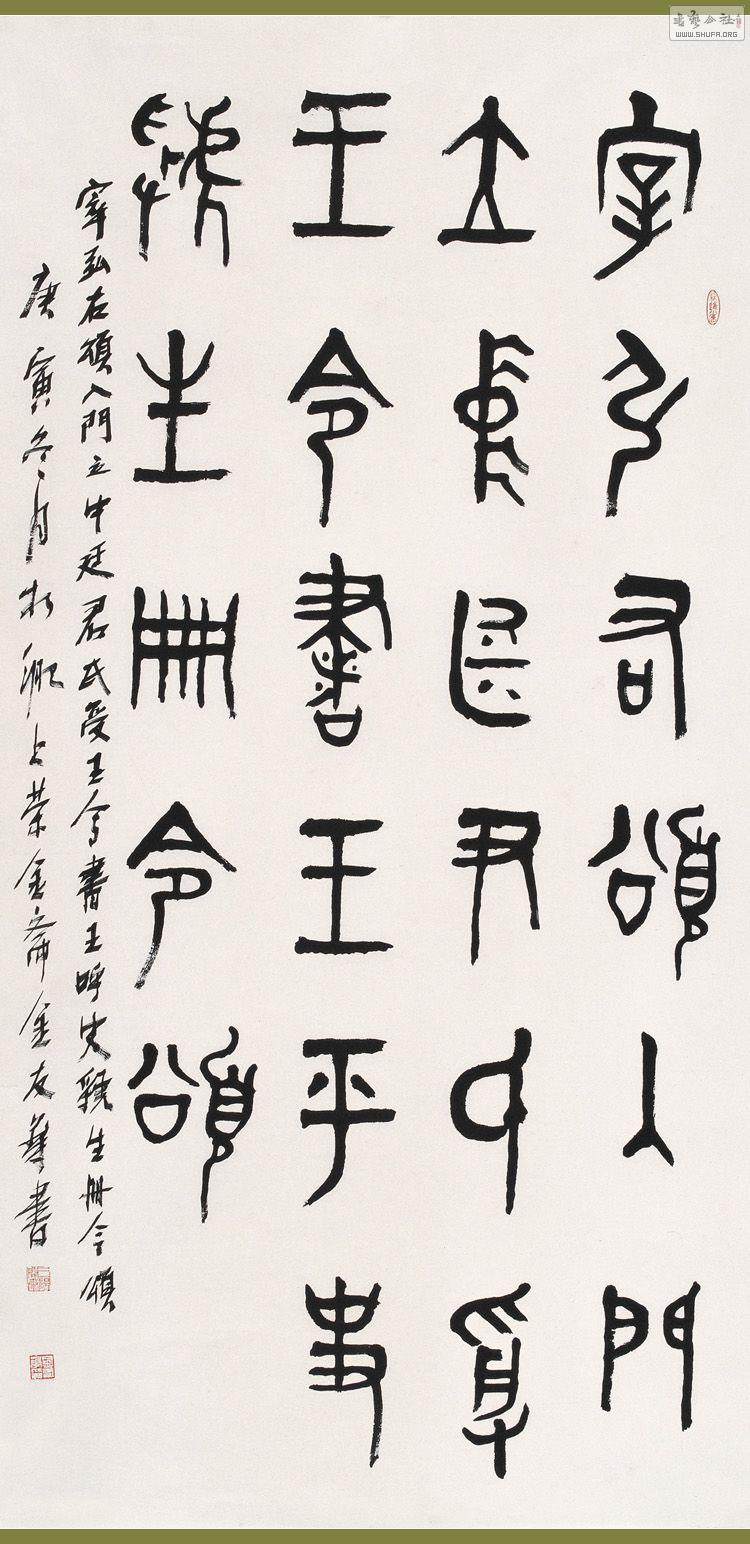 書藝公社
WWW.SHUFA.ORG
宰弘右頌入門
立中廷尹氏受
王令書王乎史
虢生冊令頌
宰弘右頌入門立中廷君氏受王令書王呼史虢生冊令頌
庚寅冬月於甌上榮金齋金友華書